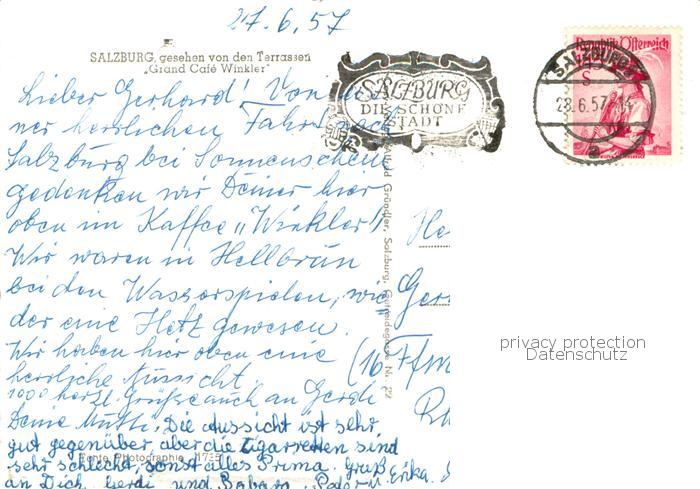 27.6.57
SALZBURG, gesehen von den Terrassen
„Grand Café Winkler"
SALZBURG
DIE SCHÖNE
STADT
Republik Österreich
SALZBURG 2
28.6.57
a
Lieber Gerhard! Von
ner herrlichen Fahrt nach
Salzburg bei Sonnenschein
gedenken wir Deiner hier
oben im Kaffee „Winkler"!
Wir waren in Hellbrun
bei den Wasserspielen, wie
der eine Hetz gewesen.
Wir haben hier oben eine
herrliche Aussicht
1000 herzl. Grüsse auch an
Deine Mutti. Die Aussicht ist sehr
gut gegenüber aber die Zigaretten sind
sehr schlecht, sonst alles Prima. Gruß
an Dich, Gerdi und Peter u. Erika.
Echte Photographie
Gründler, Salzburg, Getreidegasse Nr.
He
Ger
(16
privacy protection
Datenschutz